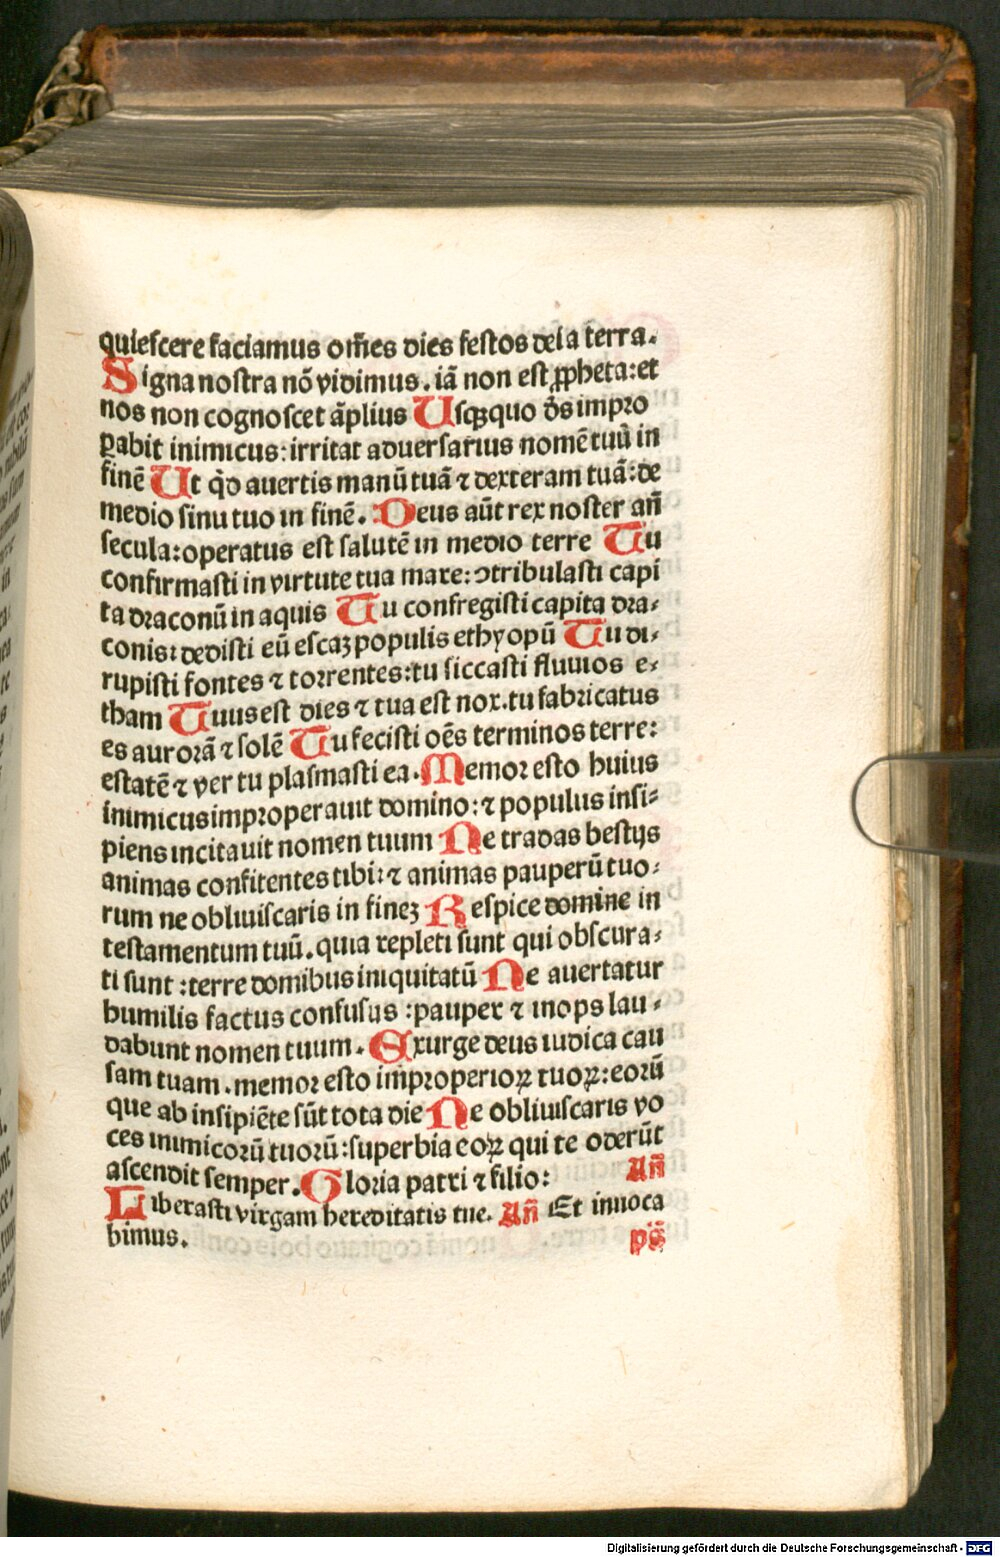 quiescere faciamus om̄es dies festos dei a terra.
Signa nostra nō vidimus. iā non est ꝓpheta: et
nos non cognoscet āplius Usqꝫquo d̄s impro
ꝑabit inimicus: irritat aduersarius nomē tuū in
finē Ut qͥd auertis manū tuā ⁊ dexteram tuā: de
medio sinu tuo in finē. Deus aūt rex noster an̄
secula: operatus est salutē in medio terre Tu
confirmasti in virtute tua mare: ↄtribulasti capi
ta draconū in aquis Tu confregisti capita dra⸗
conis: dedisti eū escaꝫ populis ethyopū Tu di⸗
rupisti fontes ⁊ torrentes: tu siccasti fluuios e⸗
tham Tuus est dies ⁊ tua est nox. tu fabricatus
es aurorā ⁊ solē Tu fecisti oēs terminos terre:
estatē ⁊ ver tu plasmasti ea. Memor esto huius
inimicus improperauit domino: ⁊ populus insi⸗
piens incitauit nomen tuum Ne tradas bestijs
animas confitentes tibi: ⁊ animas pauperū tuo⸗
rum ne obliuiscaris in fineꝫ Respice domine in
testamentum tuū. quia repleti sunt qui obscura⸗
ti sunt: terre domibus iniquitatū Ne auertatur
humilis factus confusus: pauper ⁊ inops lau⸗
dabunt nomen tuum. Exurge deus iudica cau
sam tuam. memor esto improperioꝝ tuoꝝ: eorū
que ab insipiēte sūt tota die Ne obliuiscaris vo
ces inimicorū tuorū: superbia eoꝝ qui te oderūt
ascendit semper. Gloria patri ⁊ filio: An̄
Liberasti virgam hereditatis tue. An̄ Et inuoca
bimus. ps̄
Digitalisierung gefördert durch die Deutsche Forschungsgemeinschaft - DFG